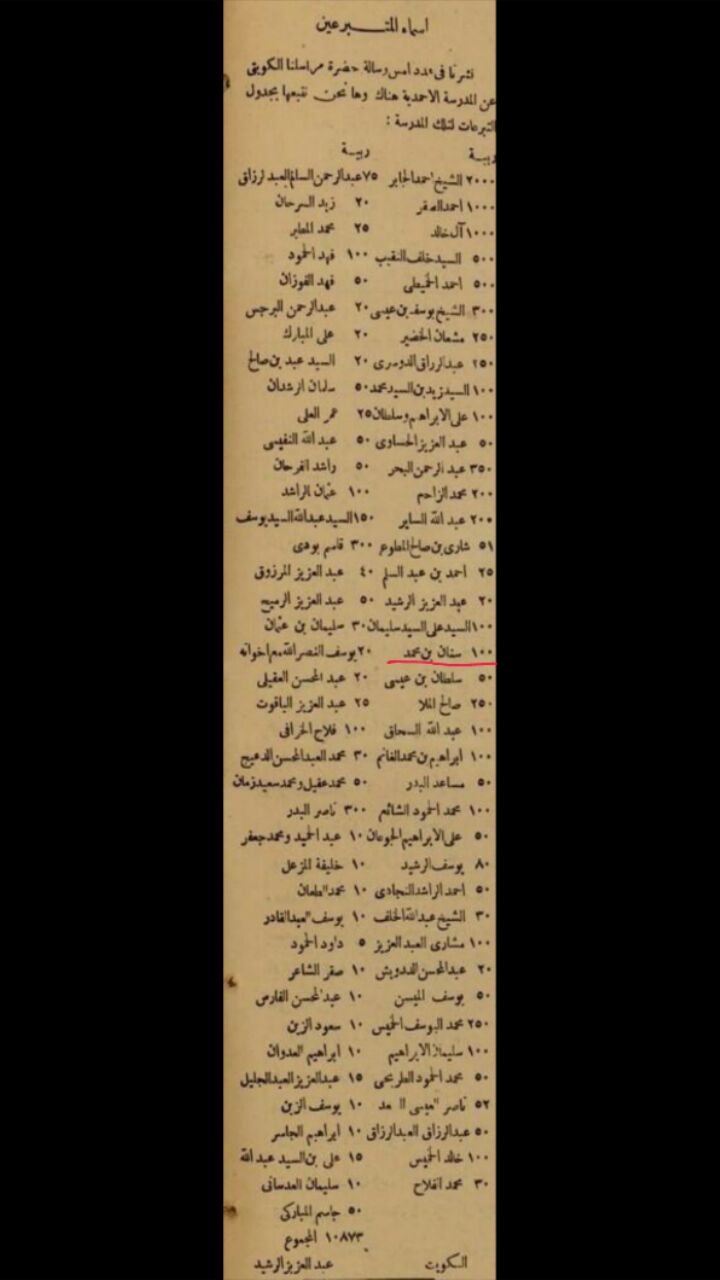 اسماء المتبرعين
نشرنا فى عدد امس رسالة حضرة مراسلنا الكويتى
عن المدرسة الاحمدية هناك وها نحن نتبعها بجدول
التبرعات لتلك المدرسة :
ربية ربية
٢٠٠٠ الشيخ احمد الجابر ٧٥ عبدالرحمن السالم العبد لرزاق
١٠٠٠ احمد الصقر ٢٠ زيد السرحان
١٠٠٠ آل خالد ٢٥ محمد
٥٠٠ السيد خلف النقيب ١٠٠ فهد الحمود
٥٠٠ احمد الحميضى ٥٠ فهد الفوزان
٣٠٠ الشيخ يوسف بن عيسى ٢٠ عبدالرحمن البرجس
٢٥٠ مشعان الخضير ٢٠ على المبارك
٢٥٠ عبدالرزاق الدوسرى ٢٠ السيد عبد بن صالح
١٠٠ السيد زيد بن السيد محمد ٥٠ سلمان الرشدان
١٠٠ على الابراهيم وسلطان ٢٥ عمر العلى
٥٠ عبد العزيز الحساوى ٥٠ عبد الله النفيسى
٣٥٠ عبد الرحمن البحر ٥٠ راشد الفرحان
٢٠٠ محمد الزاحم ١٠٠ عثمان الراشد
٢٠٠ عبد الله الساير ١٥٠ السيد عبد الله السيد يوسف
٥١ شارى بن صالح المطوع ٣٠٠ قاسم بودى
٢٥ احمد بن عبد السلم ٤٠ عبد العزيز المرزوق
٢٠ عبد العزيز الرشيد ٥٠ عبد العزيز الرميح
١٠٠ السيد على السيد سليمان ٣٠ سليمان بن عثمان
١٠٠ سنان بن محمد ٢٠ يوسف النصر الله مع اخوانه
٥٠ سلطان بن عيسى ٢٠ عبد المحسن العقيلى
٢٥٠ صالح الملا ٢٥ عبد العزيز الياقوت
١٠٠ عبد الله السحاق ١٠٠ فلاح الخرافى
١٠٠ ابراهيم بن محمد الغانم ٣٠ محمد العبدالمحسن الدعيج
٥٠ مساعد البدر ٥٠ محمد عقيل ومحمد سعيد زمان
١٠٠ محمد الحمود الشائع ٣٠٠ ناصر البدر
٥٠ على الابراهيم الجوعان ١٠ عبد الحميد ومحمد جعفر
٨٠ يوسف الرشيد ١٠ خليفة المزعل
٥٠ احمد الراشد النجادى ١٠ محمد
٣٠ الشيخ عبد الله الخلف ١٠ يوسف العبد القادر
١٠٠ مشارى العبد العزيز ٥ داود الحمود
٢٠ عبدالمحسن الدويش ١٠ صقر الشاعر
٥٠ يوسف الميسن ١٠ عبدالمحسن الفارس
٢٥٠ محمد اليوسف الخميس ١٠ سعود الزبن
١٠٠ سليمان الابراهيم ١٠ ابراهيم العدوان
٥٠ محمد الحمود الطريجى ١٥ عبدالعزيز العبد الجليل
٥٢ ناصر العيسى ١٠ يوسف الزبن
٥٠ عبدالرزاق العبدالرزاق ١٠ ابراهيم الجاسر
١٠٠ خالد الخميس ١٥ على بن السيد عبد الله
٣٠ محمد الفلاح ١٠ سليمان العدسانى
٥٠ جاسم المباركى
١٠٨٧٣ المجموع
الكويت عبد العزيز الرشيد